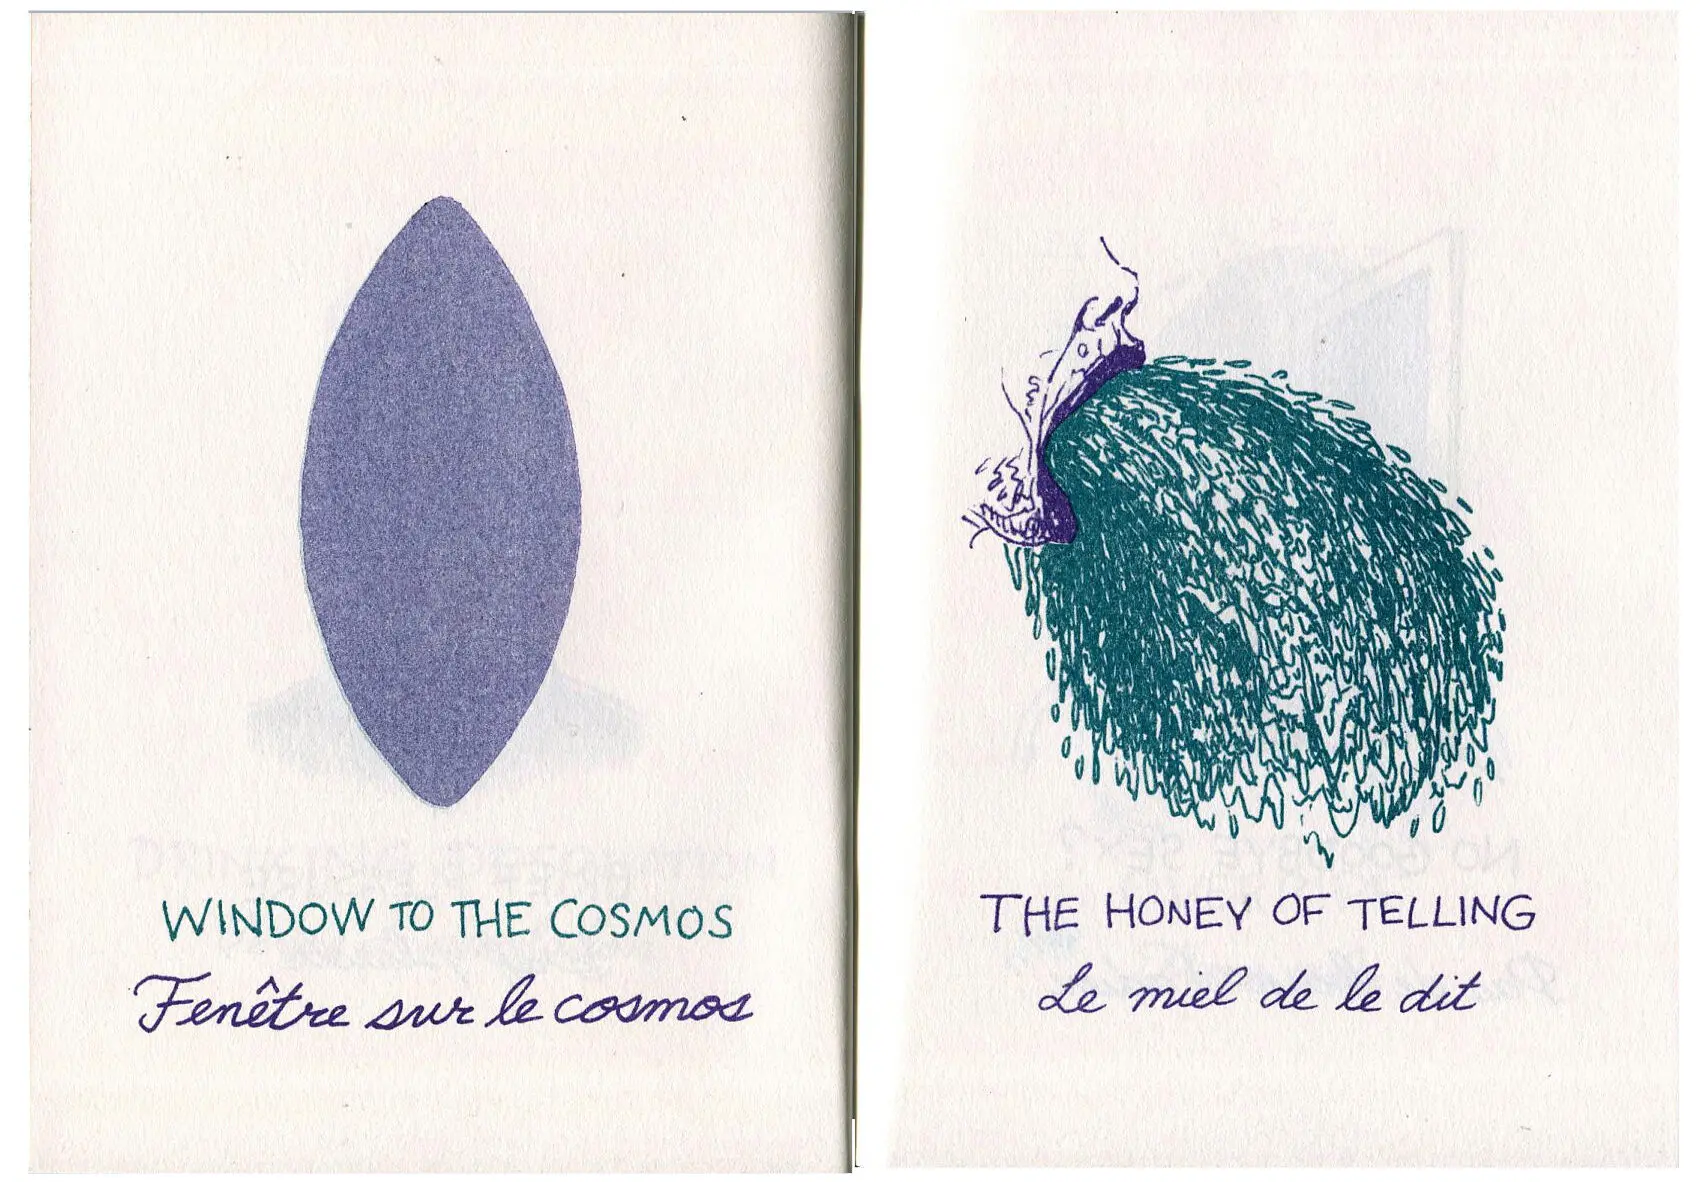 WINDOW TO THE COSMOS
Fenêtre sur le cosmos
THE HONEY OF TELLING
Le miel de le dit
NO GOODBYE SEX?